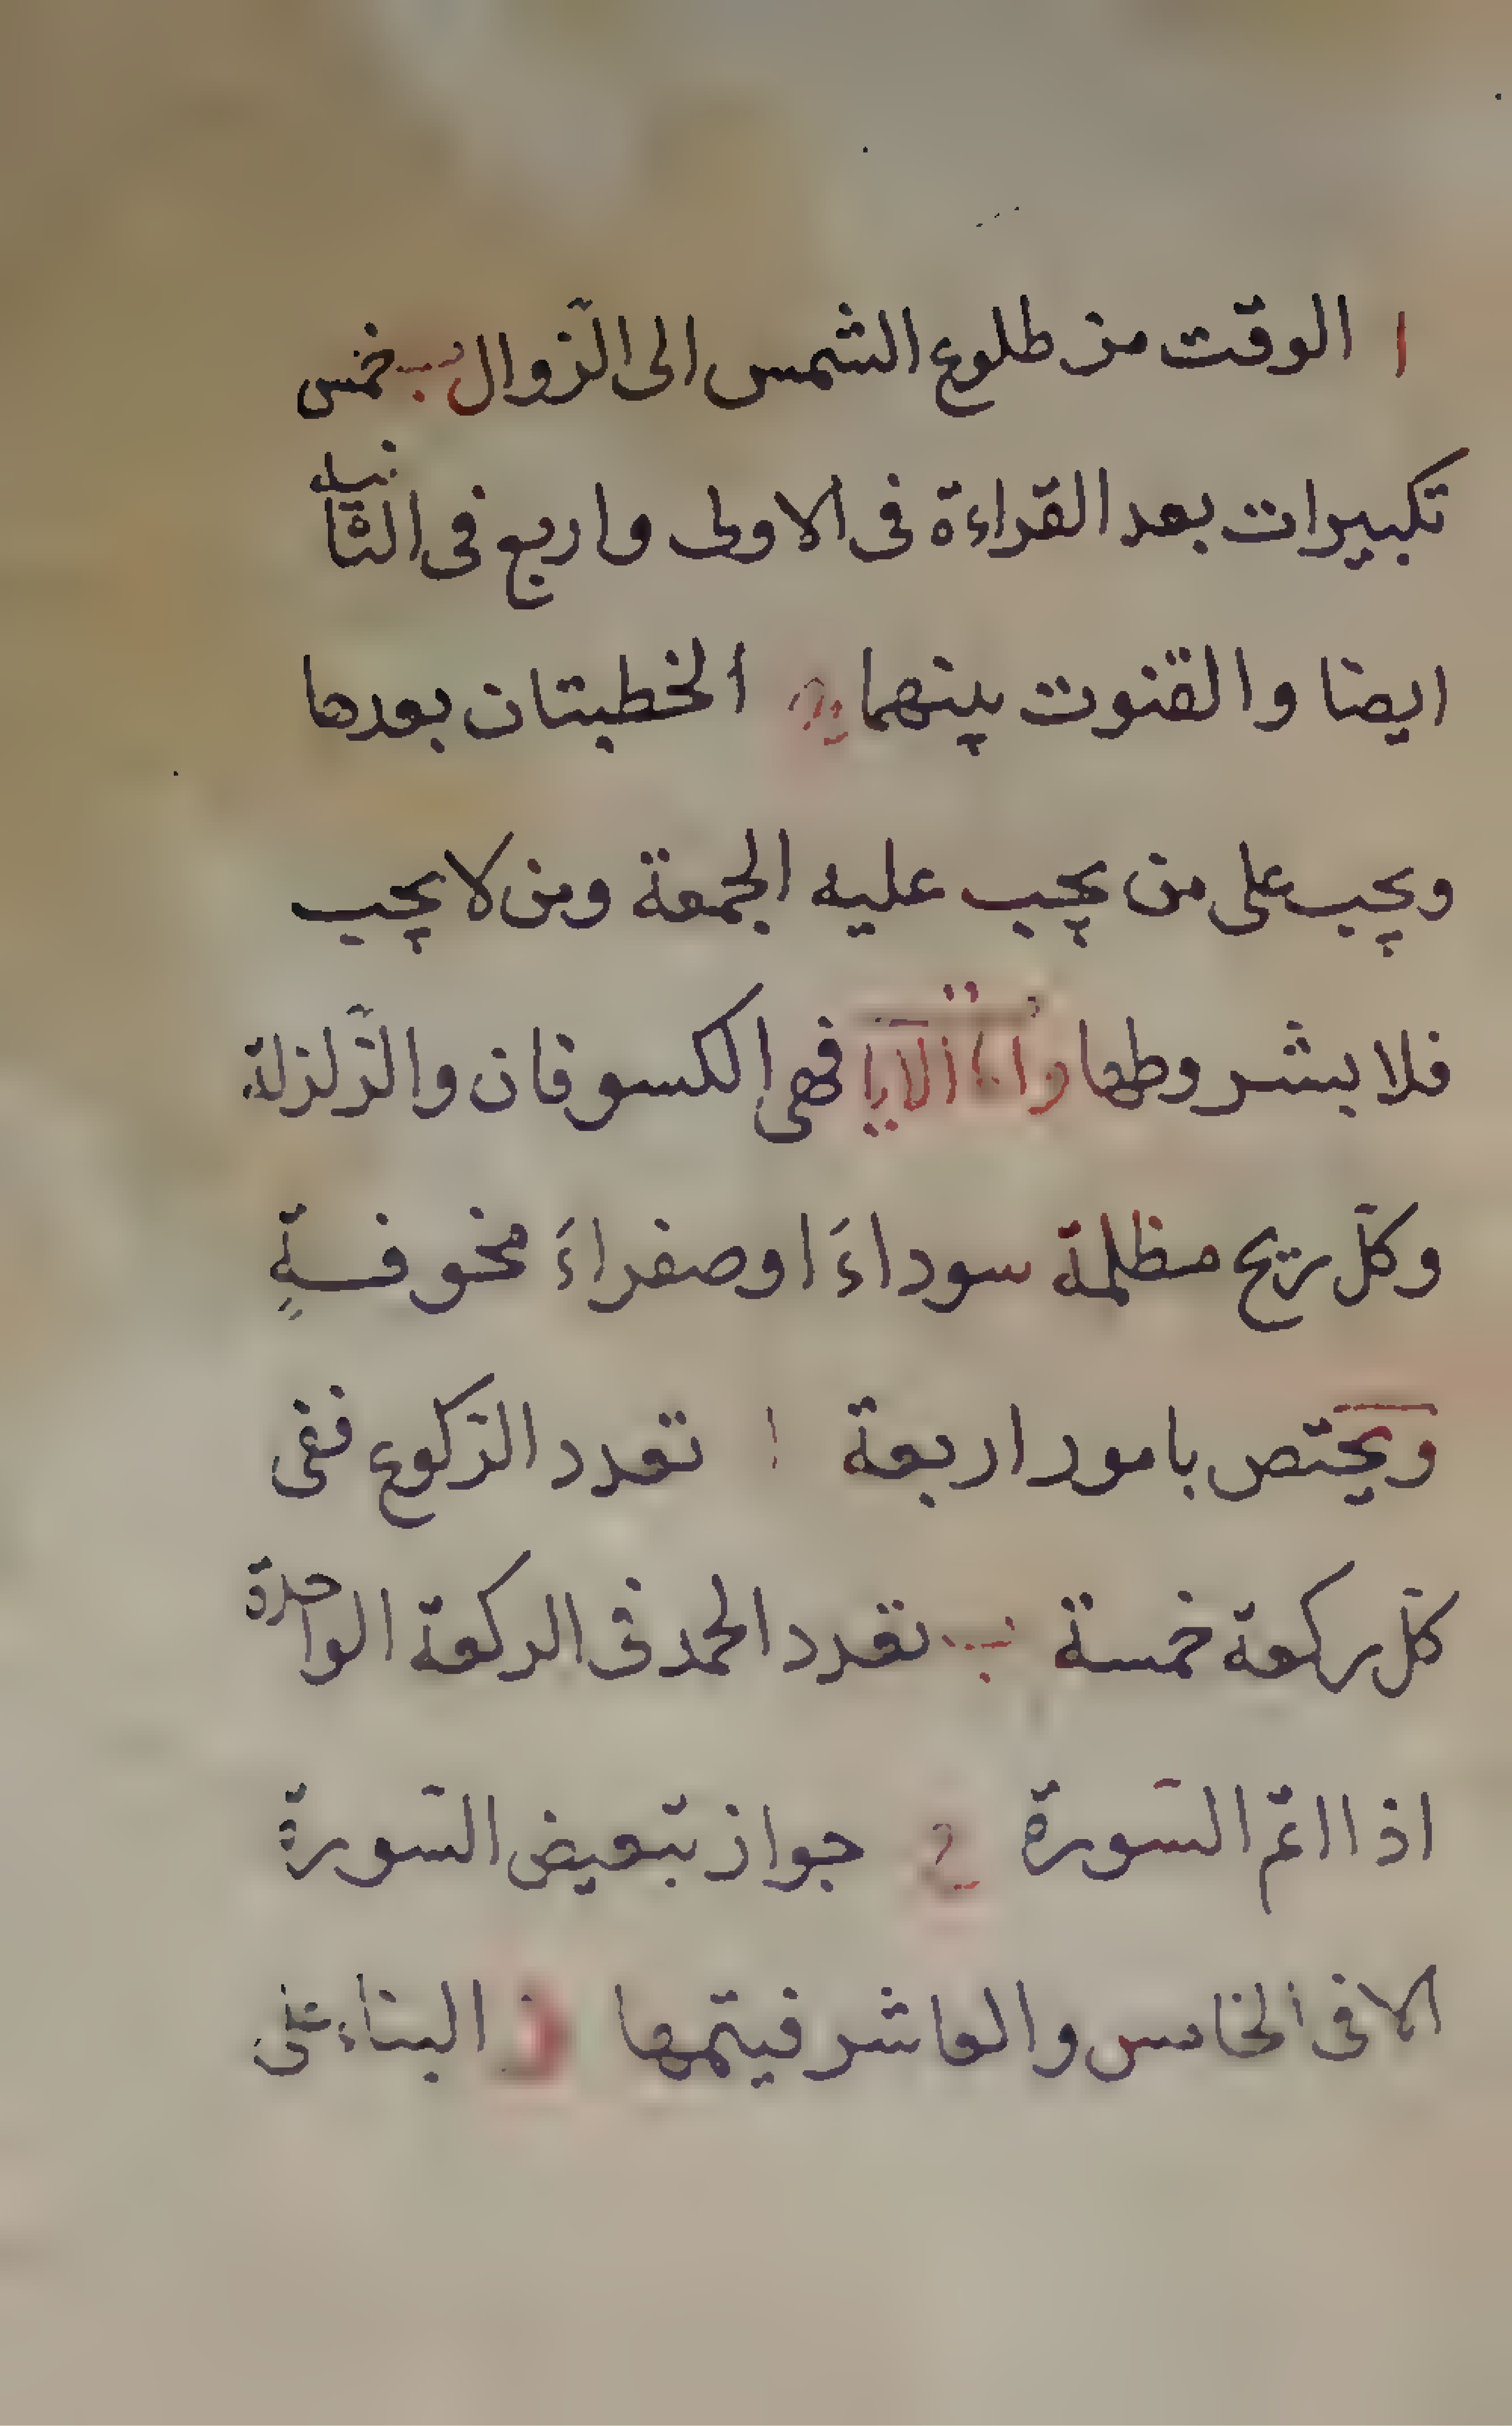 ا الوقت من طلوع الشمس الى الزّوال ب خمس
تكبيرات بعد القراءة فى الاولى واربع فى الثانية
ايضا والقنوت بينهما ج الخطبتان بعدها
ويجب على من يجب عليه الجمعة ومن لا يجب
فلا بشروطها وامّا الآيات فهى الكسوفان والزّلزلة
وكلّ ريح مظلمة سوداءَ او صفراءَ مخوفةٍ
ويختص بامور اربعة ا تعدد الرّكوع ففى
كلّ ركعة خمسة ب تعدد الحمد فى الركعة الواحدة
اذا اتمّ السّورة ج جواز تبعيض السّورة
الا فى الخامس والعاشر فيتمها د البناء على